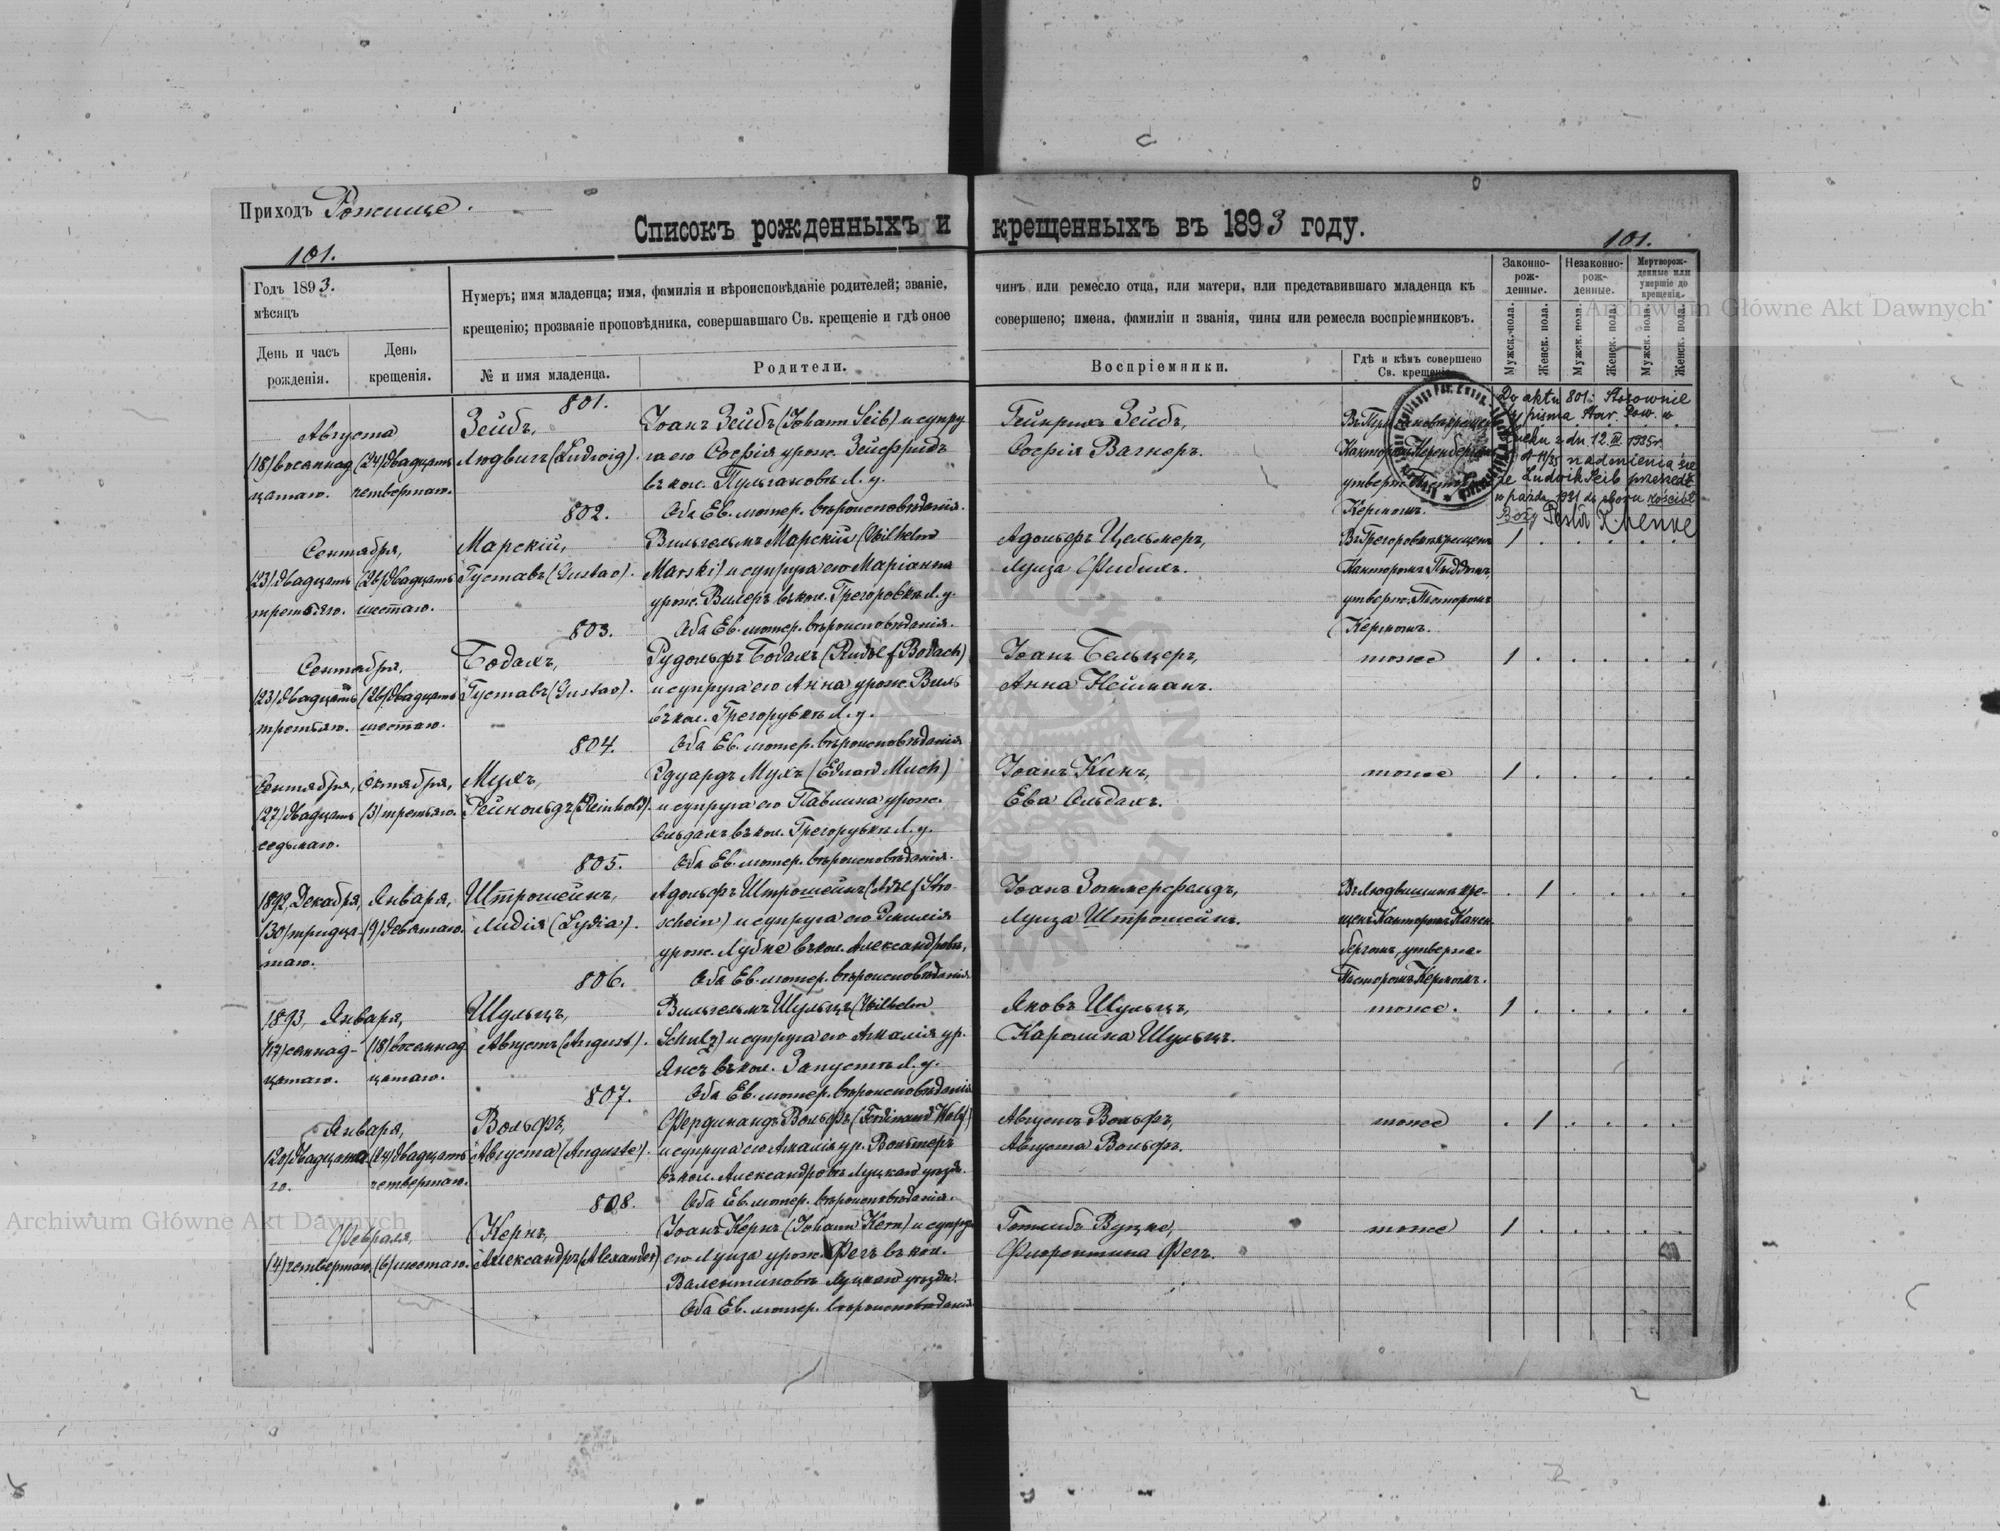 Приходъ Рожище.
Списокъ рожденныхъ и крещенныхъ въ 1893 году.
101.
101.
Годъ 1893.
мѣсяцъ
День и часъ рожденія.
День крещенія.
Нумеръ; имя младенца; имя, фамилія и вѣроисповѣданіе родителей; званіе,
крещенію; прозваніе проповѣдника, совершавшаго Св. крещеніе и гдѣ оное
№ и имя младенца.
Родители.
чинъ или ремесло отца, или матери, или представившаго младенца къ
совершено; имена, фамиліи и званія, чины или ремесла воспріемниковъ.
Воспріемники.
Гдѣ и кѣмъ совершено
Св. крещеніе
Законно-рож-денные.
Незаконно-рож-денные.
Мертворож-денные или умершіе до крещенія.
Мужск. пола.
Женск. пола.
Мужск. пола.
Женск. пола.
Мужск. пола.
Женск. пола.
801.
Августа
(18) восемнад (24) двадцать
цатаго. четвертаго.
Зейбъ,
Людвигъ (Ludwig).
Іоанъ Зейбъ (Johann Seib) и супру
га его Софія урож. Зейфридъ
въ кол. Пульгановъ Л. у.
Оба Ев. лютер. вѣроисповѣданія.
Гейнрихъ Зейбъ,
Софія Вагнеръ.
Канторомъ
утверж.
Керномъ.
Do aktu 801: Stosownie
pisma Star. Pow. w
z dn 12. III 1935 r.
nadmienia się
że Ludwik Seib przeszedł
w paźdz. 1931 do zboru
Boży Pastor
802.
Сентября,
(23) двадцать (26) двадцать
третьяго. шестаго.
Марскій,
Густавъ (Gustav).
Вильгельмъ Марскій (Wilhelm
Marski) и супруга его Маріанна
урож. Вилеръ въ кол. Грегоровкѣ Л. у.
Оба Ев. лютер. вѣроисповѣданія.
Адольфъ Цельмеръ,
Луиза Фибихъ.
Въ Грегоровкѣ крещенъ
Канторомъ
утверж. Пасторомъ
Керномъ.
1 . . . . .
803.
Сентября,
(23) двадцать (26) двадцать
третьяго. шестаго.
Бодахъ,
Густавъ (Gustav).
Рудольфъ Бодахъ (Rudolf Bodach)
и супруга его Анна урож. Виль
въ кол. Грегорувкѣ Л. у.
Оба Ев. лютер. вѣроисповѣданія
Іоанъ Бельцеръ,
Анна Нейманъ.
тоже
1 . . . . .
804.
Сентября, Октября,
(27) двадцать (3) третьяго.
седьмаго.
Мухъ,
Рейнольдъ (Reinhold).
Эдуардъ Мухъ (Eduard Much)
и супруга его Павлина урож.
Ольдахъ въ кол. Грегорувкѣ Л. у.
Оба Ев. лютер. вѣроисповѣданія.
Іоанъ Кинъ,
Ева Ольдахъ.
тоже
1 . . . . .
805.
1892, Декабря, Января,
(30) тридца- (9) девятаго.
таго.
Штрошейнъ,
Лидія (Lydia).
Адольфъ Штрошейнъ (Adolf Stro-
schein) и супруга его Эмилія
урож. Лубке въ кол. Александровъ,
Оба Ев. лютер. вѣроисповѣданія
Іоанъ Зоммерфельдъ,
Луиза Штрошейнъ.
Въ Людвишина кре-
щенъ Канторомъ Канен
бергомъ, утверж.
Пасторомъ Керномъ.
. 1 . . . .
806.
1893, Января,
(17) семнад- (18) восемнад
цатаго. цатаго.
Шульцъ,
Августъ (August).
Вильгельмъ Шульцъ (Wilhelm
Schulz) и супруга его Амалія ур.
Янсъ въ кол. Запустъ Л. у.
Оба Ев. лютер. вѣроисповѣданія
Яковъ Шульцъ,
Каролина Шульцъ.
тоже.
1 . . . . .
807.
Января,
(20) двадцата (24) двадцать
го. четвертаго.
Вольфъ,
Августа (Auguste).
Фердинандъ Вольфъ (Ferdinand Wolf)
и супруга его Амалія ур. Вольтеръ
въ кол. Александровъ Луцкаго уѣзда.
Оба Ев. лютер. вѣроисповѣданія.
Августъ Вольфъ,
Августа Вольфъ.
тоже
. 1 . . . .
808.
Февраля,
(4) четвертаго. (6) шестаго.
Кернъ,
Александръ (Alexander)
Іоанъ Кернъ (Johann Kern) и супруга
его Луиза урож. Фегъ въ кол.
Валентиновъ Луцкаго уѣзда.
Оба Ев. лютер. вѣроисповѣданія
Готлибъ Вуцке,
Флорентина Фегъ.
тоже
1 . . . . .
Archiwum Główne Akt Dawnych
Archiwum Główne Akt Dawnych